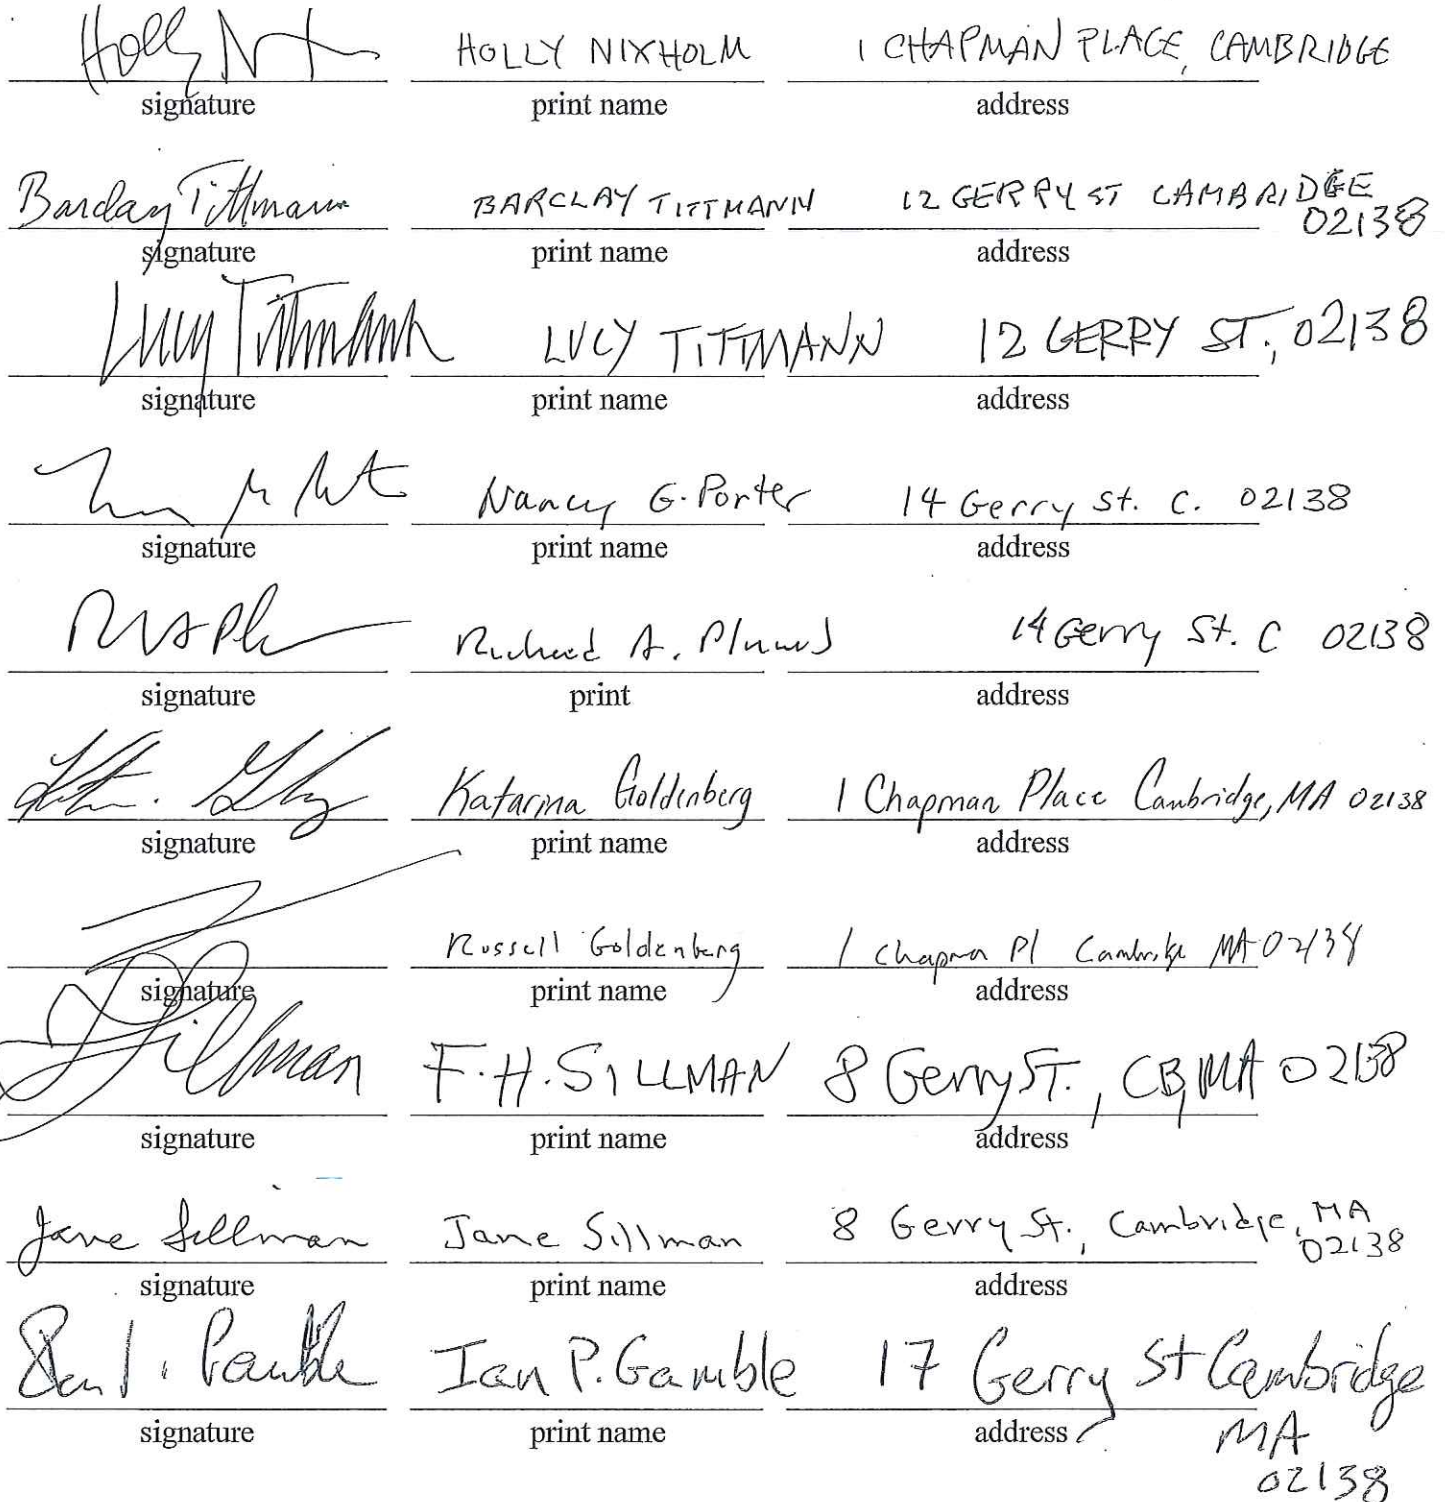 Holly N HOLLY NIXHOLM 1 CHAPMAN PLACE, CAMBRIDGE
signature print name address
Barclay Tittmann BARCLAY TITTMANN 12 GERRY ST CAMBRIDGE
02138
signature print name address
Lucy Tittmann LUCY TITTMANN 12 GERRY ST., 02138
signature print name address
Nancy G. Porter 14 Gerry St. C. 02138
signature print name address
Richard A. 14 Gerry St. C 02138
signature print address
Katarina Goldenberg 1 Chapman Place Cambridge, MA 02138
signature print name address
Russell Goldenberg 1 Chapman Pl Cambridge MA 02138
signature print name address
Sillman F.H. SILLMAN 8 Gerry ST., CB, MA 02138
signature print name address
Jane Sillman Jane Sillman 8 Gerry St., Cambridge, MA
02138
signature print name address
Ian P. Gamble 17 Gerry St Cambridge
signature print name address
MA
02138